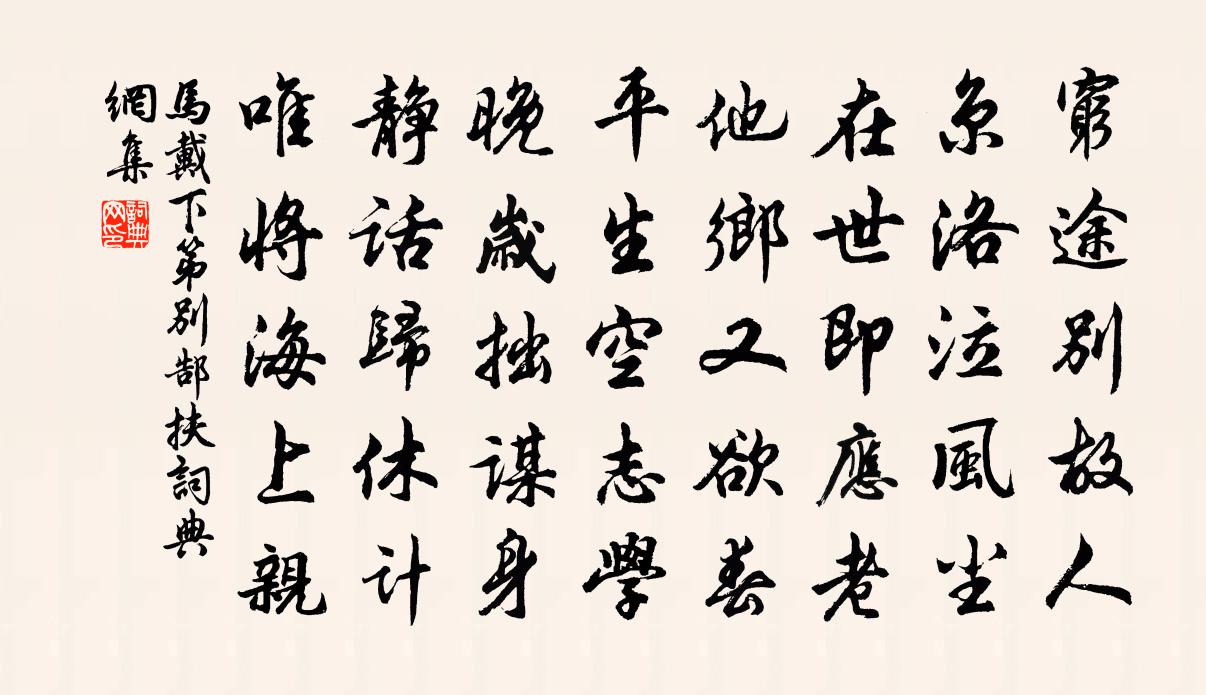 窮途別故人
京洛泣風尘
在世即應老
他鄉又欲春
平生空志學
晚歲拙謀身
靜話歸休计
唯將海上親
馬戴下第別郜扶詞典
網集
詞典網印